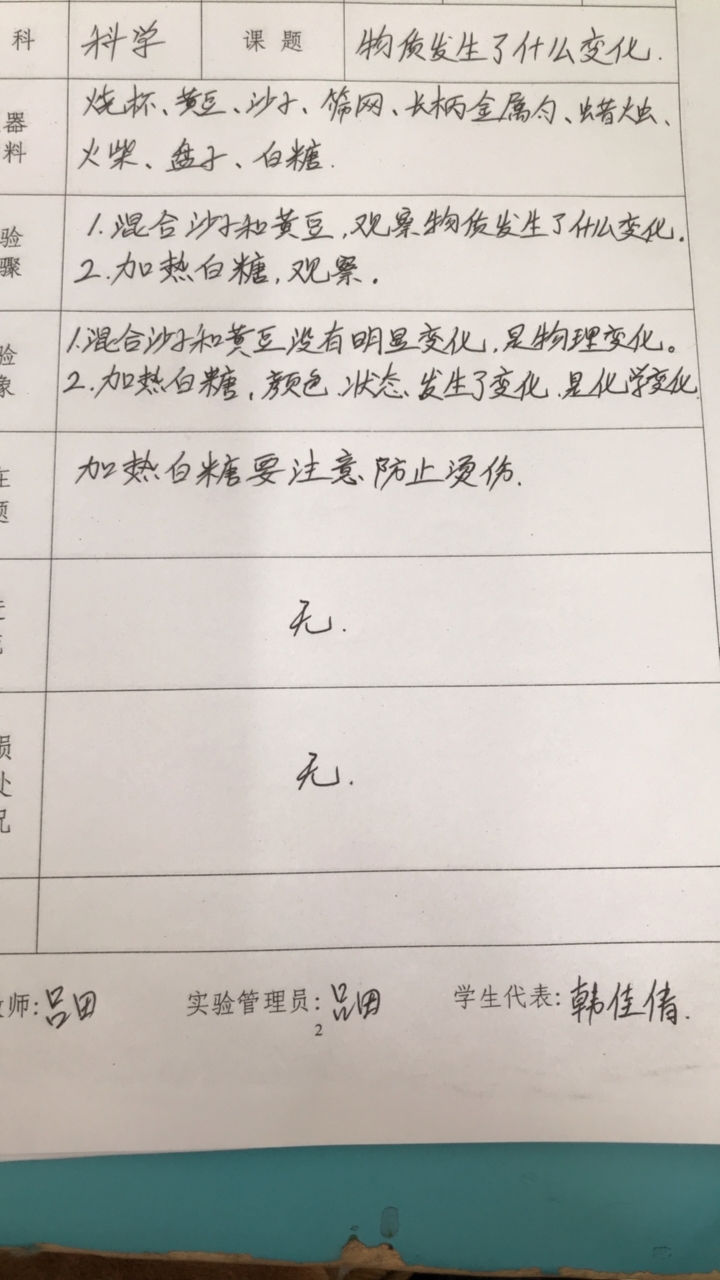 科 科学 课题 物质发生了什么变化.
器 烧杯、黄豆、沙子、筛网、长柄金属勺、蜡烛、
料 火柴、盘子、白糖.
验 1.混合沙子和黄豆,观察物质发生了什么变化.
骤 2.加热白糖,观察.
验 1.混合沙子和黄豆没有明显变化,是物理变化。
象 2.加热白糖,颜色、状态、发生了变化.是化学变化
在 加热白糖要注意、防止烫伤.
题
无.
损
处 无.
况
师:吕田 实验管理员:吕田 学生代表:韩佳倩.
2